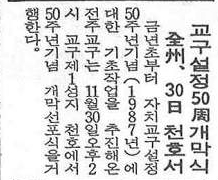 교구설정50周개막식
全州, 30일 천호서
금년초부터 자치교구설정
50주년기념(1987년)에
대한 기초작업을 추진해온
전주교구는 11월30일오후2
시 교구제1성지 천호에서
50주년기념 개막선포식을거
행한다.